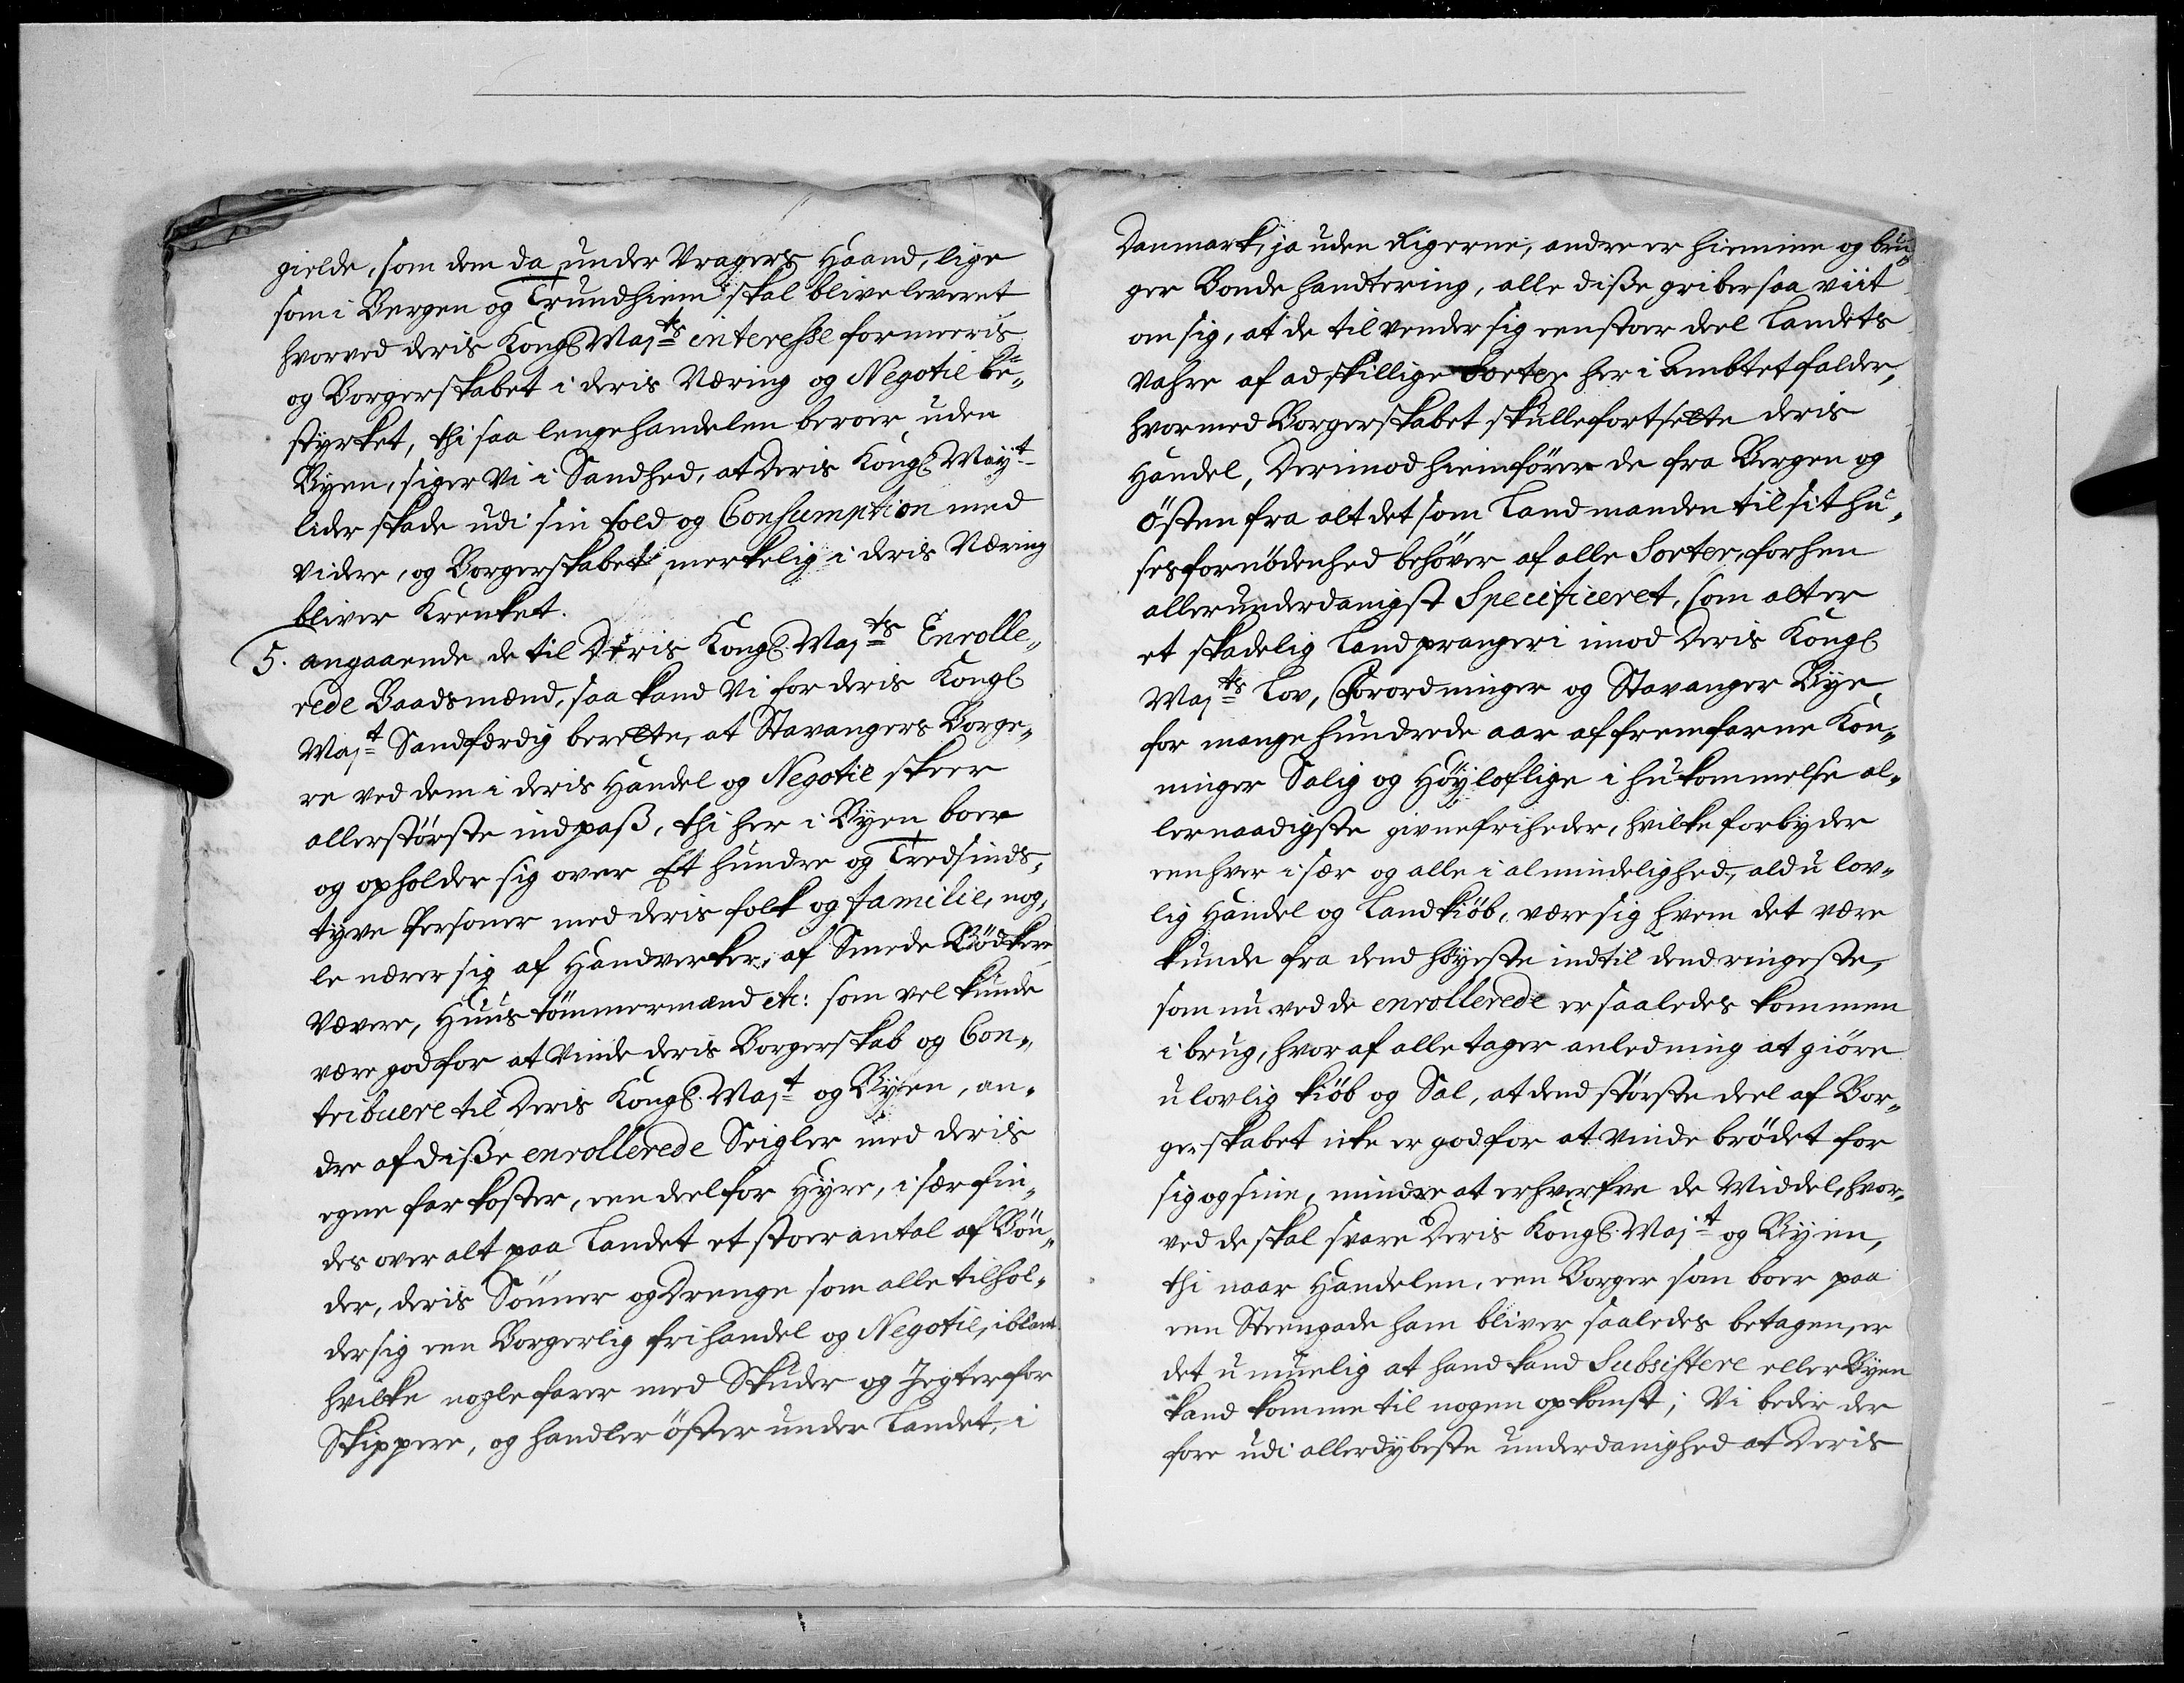 gielde, som dem da under Vragers Haand, lige
som i Bergen og Trundhiem skal blive leveret
hvorved deris Kongl Majts interesse formeeris
og Borgerskabet i deris Næring og Negotie be„
styrket, thi saa lenge handelen beroer uden
Byen, siger Vi i Sandhed, at deris Kongl Mayt
lider skade udi sin told og Consumption med
videre, og Borgerskabet merkelig i deris Næring
bliver Krenket.
5. angaaende de til Deris Kongl. Majts Enrolle„
rede Baadsmænd, saa kand Vi for deris Kongl
Majt Sandfærdig berette, at Stavangers Borge„
re ved dem i deris Handel og Negotie skeer
allerstørste indpass, thi her i Byen boer
og opholder sig over Et hundre og Tredsinds„
tyve Personer med deris folk og familie, nog„
le nærer sig af Handverker, af Smede Bödkere
Vævere, Huus tömmermænd etc: som vel kunde
være god for at Vinde deris Borgerskab og Con„
tribuere til Deris Kongl. Majt og Byen, an„
dre af disse enrollerede Seigler med deris
egne farkoster, een deel for Hyre, i sær fin„
des over alt paa Landet et stoer antal af Bön„
der, deris Sönner og Drenge som alle tilhol„
der sig een Borgerlig frihandel og Negotie, iblant
hvilke nogle farer med Skuder og Jegter for
Skippere, og handler öster under Landet, i
Danmark, ja uden Rigerne, andre er hiemme og bru„
ger Bonde handtering, alle disse griber saa viit
om sig, at de tilvender sig een stoer deel Landets
Vahre af adskillige Sorter her i Ambtet falder,
hvormed Borgerskabet skulle fortsette deris
Handel, Derimod hiemförer de fra Bergen og
Östen fra alt det som Landmanden til sit hu„
ses fornödenhed behöver af alle Sorter, forhen
allerunderdanigst Specificeret, som alt er
et skadelig Landprangeri imod Deris Kongl
Majts Lov, Forordninger og Stavanger Bye
for mange hundrede aar af fremfarne Kon„
ninger Salig og Höylovlige i hukommelse al„
lernaadigste givne friheder, hvilke forbyder
een hver i sær og alle i almindelighed, ald u lov„
lig Handel og Landkiöb, være sig hvem det være
kunde fra dend höyeste indtil dend ringeste,
som nu ved de enrollerede er saaledes kommen
i brug, hvoraf alle tager anledning at giöre
ulovlig kiöb og Sal, at dend störste deel af Bor„
gerskabet icke er god for at vinde brödet for
sig og sine, mindre at erhverfve de Middel, hvor„
ved de skal svare Deris Kongl. Majt og Byen,
thi naar Handelen, een Borger som boer paa
een Steengade ham bliver saaledes betagen, er
det u muelig at hand kand Subsistere eller Byen
kand komme til nogen opkomst; Vi beder der
fore udi allerdybeste underdanighed at Deris